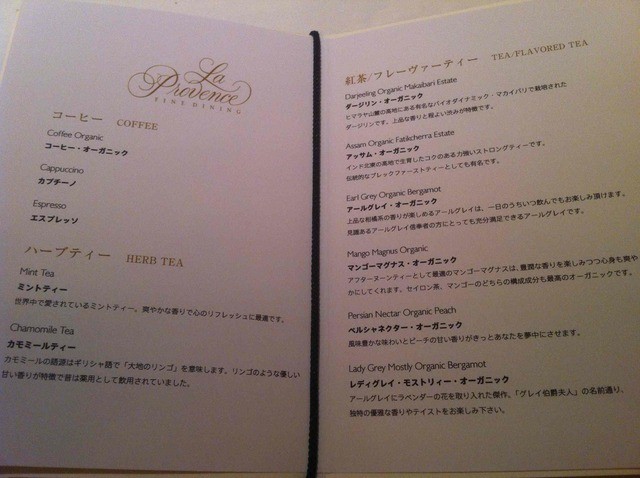 La
Provence
FINE DINING
コーヒー COFFEE
Coffee Organic
コーヒー・オーガニック
Cappuccino
カプチーノ
Espresso
エスプレッソ
ハーブティー HERB TEA
Mint Tea
ミントティー
世界中で愛されているミントティー。爽やかな香りで心のリフレッシュに最適です。
Chamomile Tea
カモミールティー
カモミールの語源はギリシャ語で「大地のリンゴ」を意味します。リンゴのような優しい
甘い香りが特徴で昔は薬用として飲用されていました。
紅茶/フレーヴァーティー TEA/FLAVORED TEA
Darjeeling Organic Makaibari Estate
ダージリン・オーガニック
ヒマラヤ山麓の高地にある有名なバイオダイナミック・マカイバリで栽培された
ダージリンです。上品な香りと程よい渋みが特徴です。
Assam Organic Fatikcherra Estate
アッサム・オーガニック
インド北東の高地で生育したコクのある力強いストロングティーです。
伝統的なブレックファーストティーとしても有名です。
Earl Grey Organic Bergamot
アールグレイ・オーガニック
上品な柑橘系の香りが楽しめるアールグレイは、一日のうちいつ飲んでもお楽しみ頂けます。
見識あるアールグレイ信奉者の方にとっても充分満足できるアールグレイです。
Mango Magnus Organic
マンゴーマグナス・オーガニック
アフターヌーンティーとして最適のマンゴーマグナスは、豊潤な香りを楽しみつつ心身も爽や
かにしてくれます。セイロン茶、マンゴーのどちらの構成成分も最高のオーガニックです。
Persian Nectar Organic Peach
ペルシャネクター・オーガニック
風味豊かな味わいとピーチの甘い香りがきっとあなたを夢中にさせます。
Lady Grey Mostly Organic Bergamot
レディグレイ・モストリィー・オーガニック
アールグレイにラベンダーの花を取り入れた傑作、「グレイ伯爵夫人」の名前通り、
独特の優雅な香りやテイストをお楽しみ下さい。